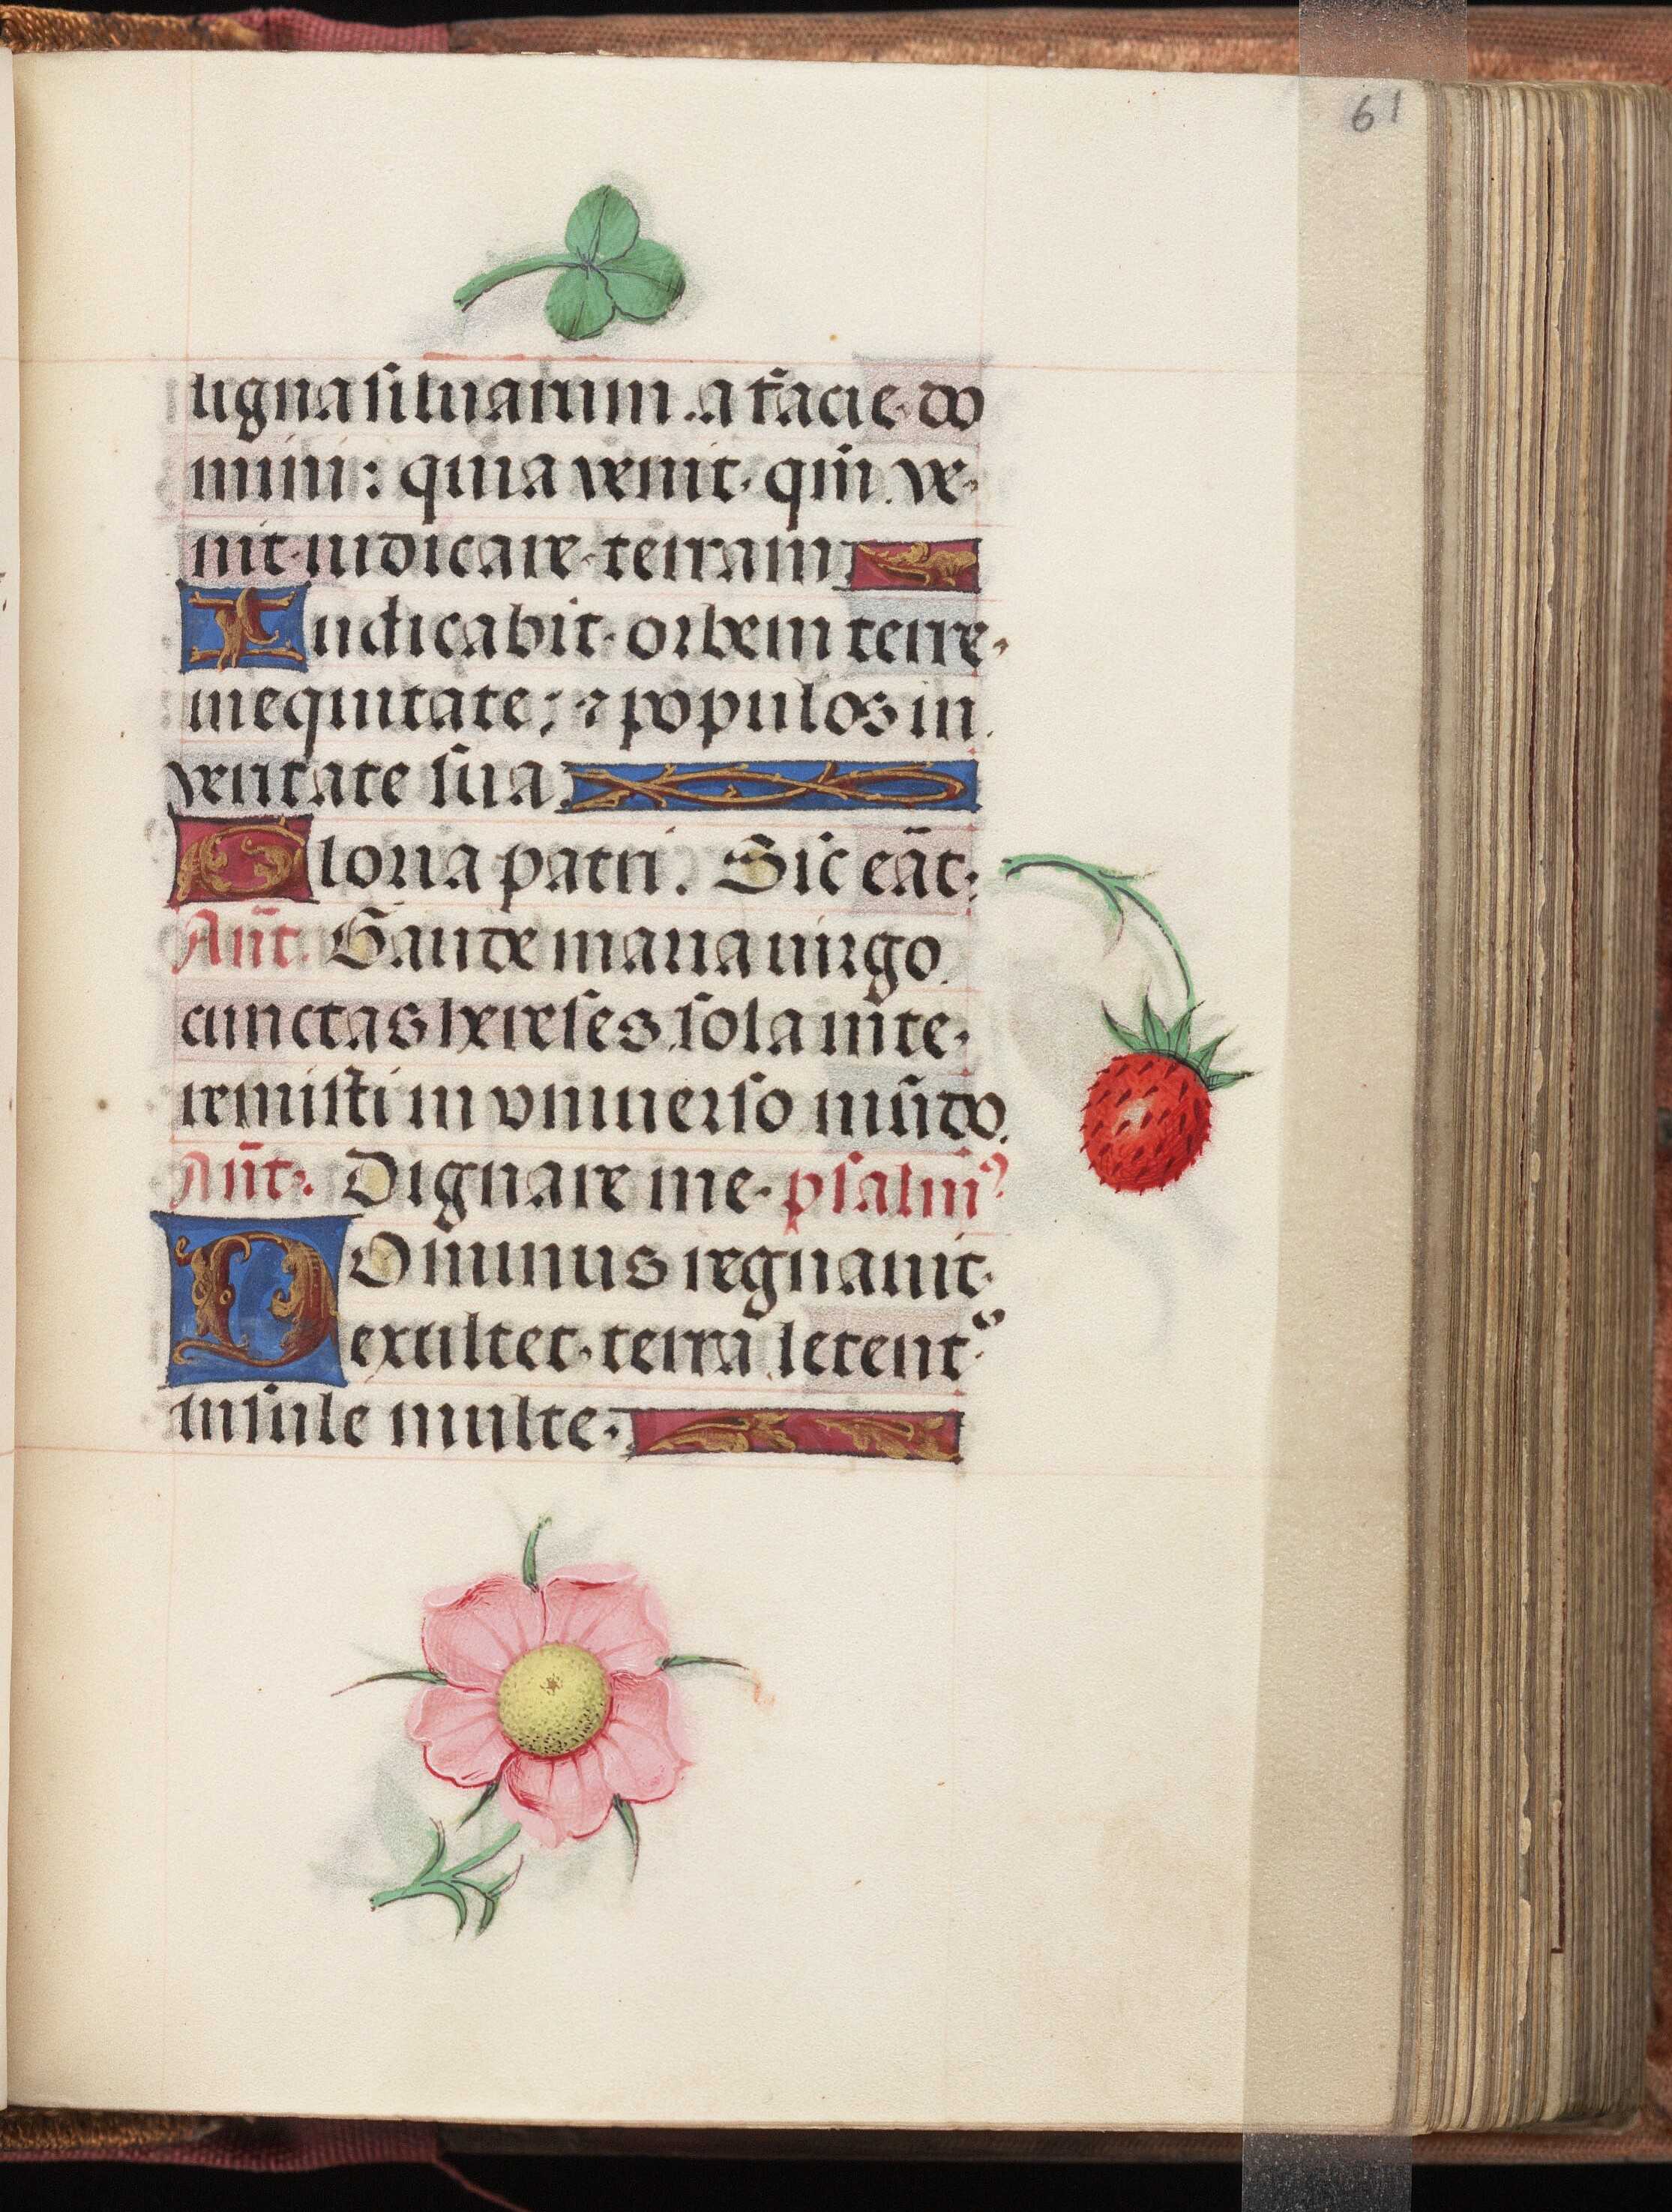 61
ligna siluarum. a facie do
mini: quia venit. qm̄ ve-
nit iudicare terram
Iudicabit orbem terre
in equitate; ⁊ populos in
veritate sua.
Gloria patri. Sic̄ erāt.
Ant̄. Gaude maria uirgo.
cunctas hereses sola inte-
remisti in vniuerso mūdo.
Ant̄. Dignare me. psalmꝰ
DOminus regnauit
exultet terra letentᷣ
insule multe.